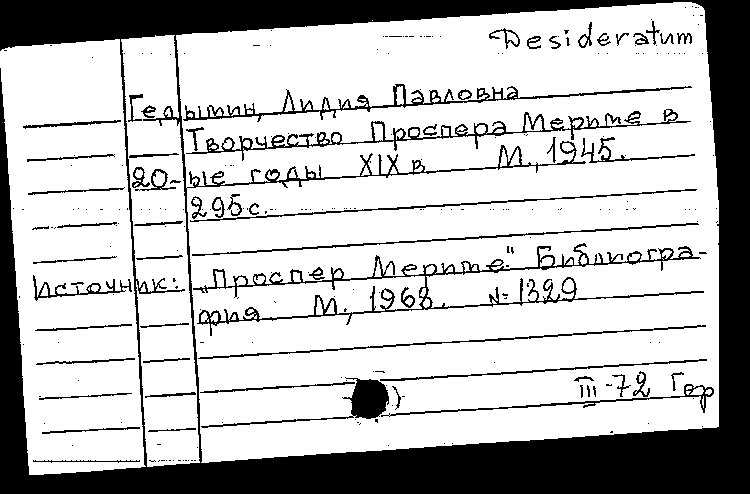 Desideratum
Гедымин, Лидия Павловна
Творчество Проспера Мериме в
20-ые годы XIX в. М., 1945.
295 с.
Источник: „Проспер Мериме" Библиогра-
фия. М., 1968. № 1329
III-72 Гор